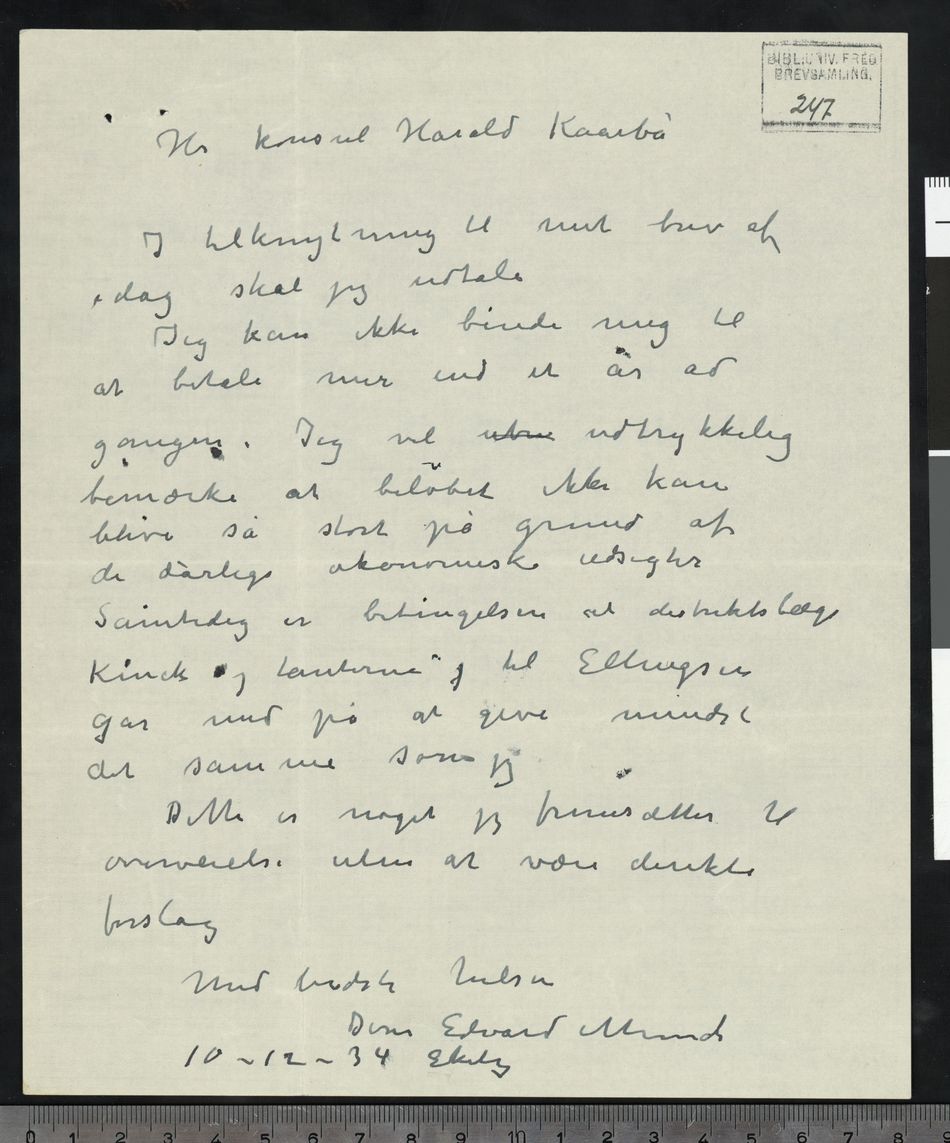 BIBL. UNIV. FRED
BREVSAMLING.
247
Hr konsul Harald Kaarbö
I tilknytning til mit brev af
idag skal jeg udtale
Jeg kan ikke binde mig til
at betale mer end et år ad
gangen. Jeg vil udtrykkelig
bemærke at beløbet ikke kan
blive så stort på grund af
de dårlige økonomiske udsigter
Samtidig er betingelsen at distriktslæge
Kinck og tanterne til Ellingsen
går med på at give mindst
det samme som jeg
Dette er noget jeg fremsætter til
overveielse uten at være direkte
forslag
Med bedste hilsen
Deres Edvard Munch
10-12-34 Ekely
0 1 2 3 4 5 6 7 8 9 10 1 2 3 4 5 6 7 8 9